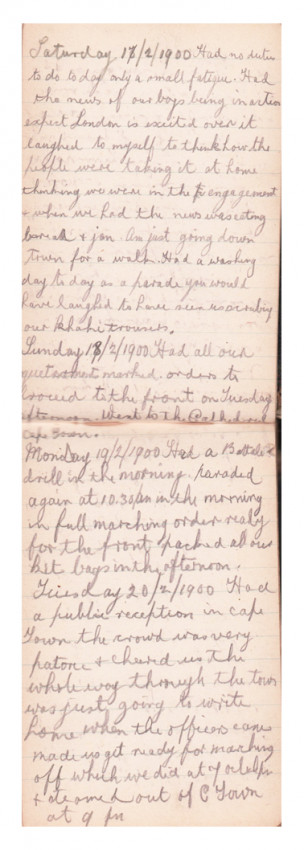 Saturday 17/2/1900 Had no duties
to do to day only a small fatigue. Had
the news of our boys being in action
expect London is excited over it
laughed to myself to think how the
people were taking it at home
thinking we were in the engagement
& when we had the news was eating
bread & jam. Am just going down
Town for a walk. Had a washing
day to day as a parade you would
have laughed to have seen us scrubing
our khahi trouses.
Sunday 18/2/1900 Had all our
marked. orders to
proceed to the front on Tuesday
afternoon. Went to the Cathedral
Cape Town.
Monday 19/2/1900 Had a
drill in the morning. paraded
again at 10.30 am in the morning
in full marching order realy
for the front packed all our
ket bags in the afternoon.
Tuesday 20/2/1900 Had
a public reception in cape
Town the crowd was very
& cheerd us the
whole way through the town
was just going to write
home when the officer came
made us get ready for marching
off which we did at 7 oclock pm
& steamed out of C Town
at 9 pm